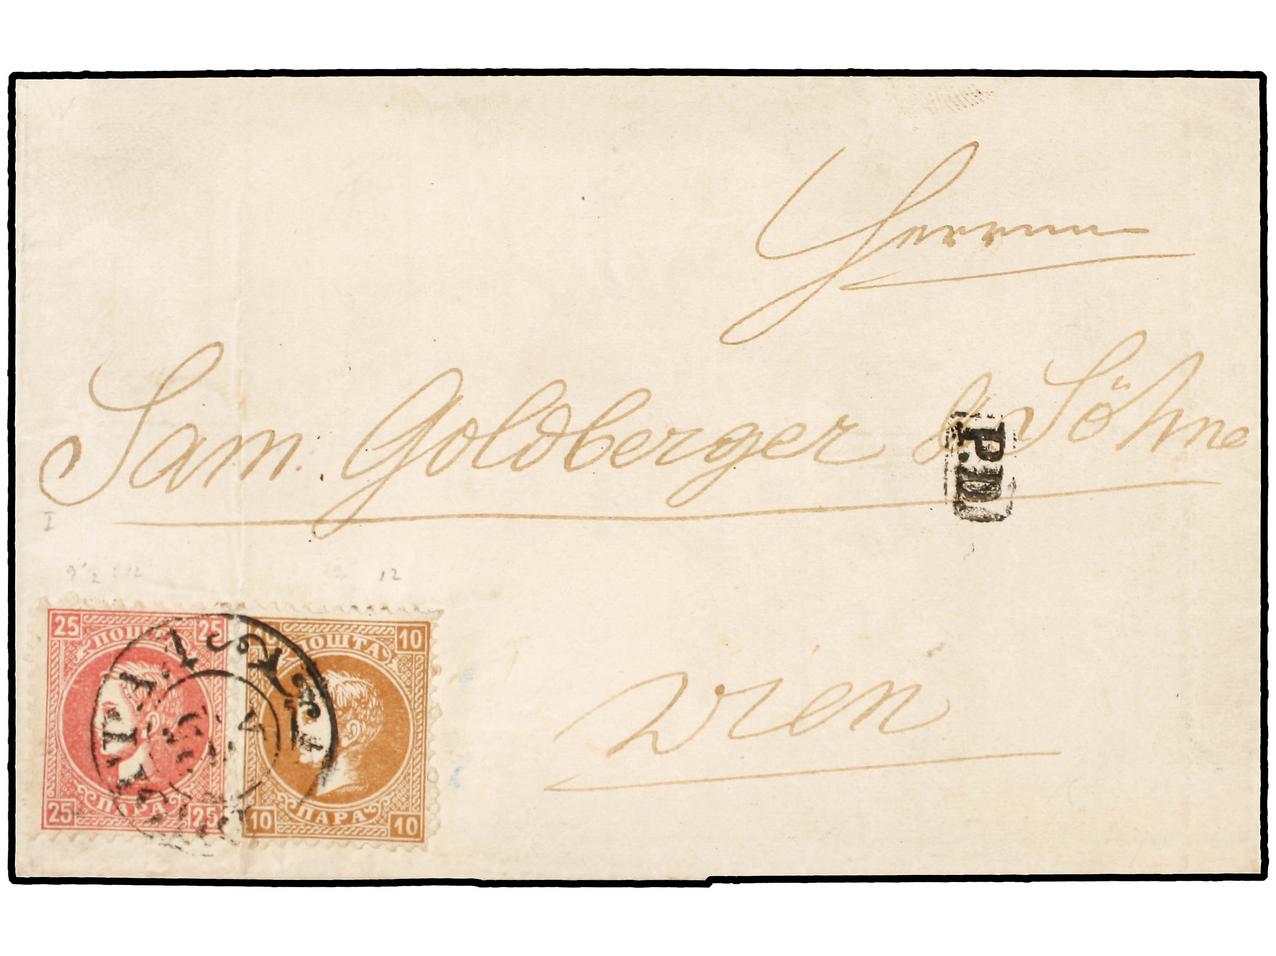 Herrnn
Sam. Goldberger & Söhne
P.D.
I
9 1/2 : 12
12
25 25
ПОШТА
ПАРА
25 25
10 10
ПОШТА
ПАРА
10 10
Wien